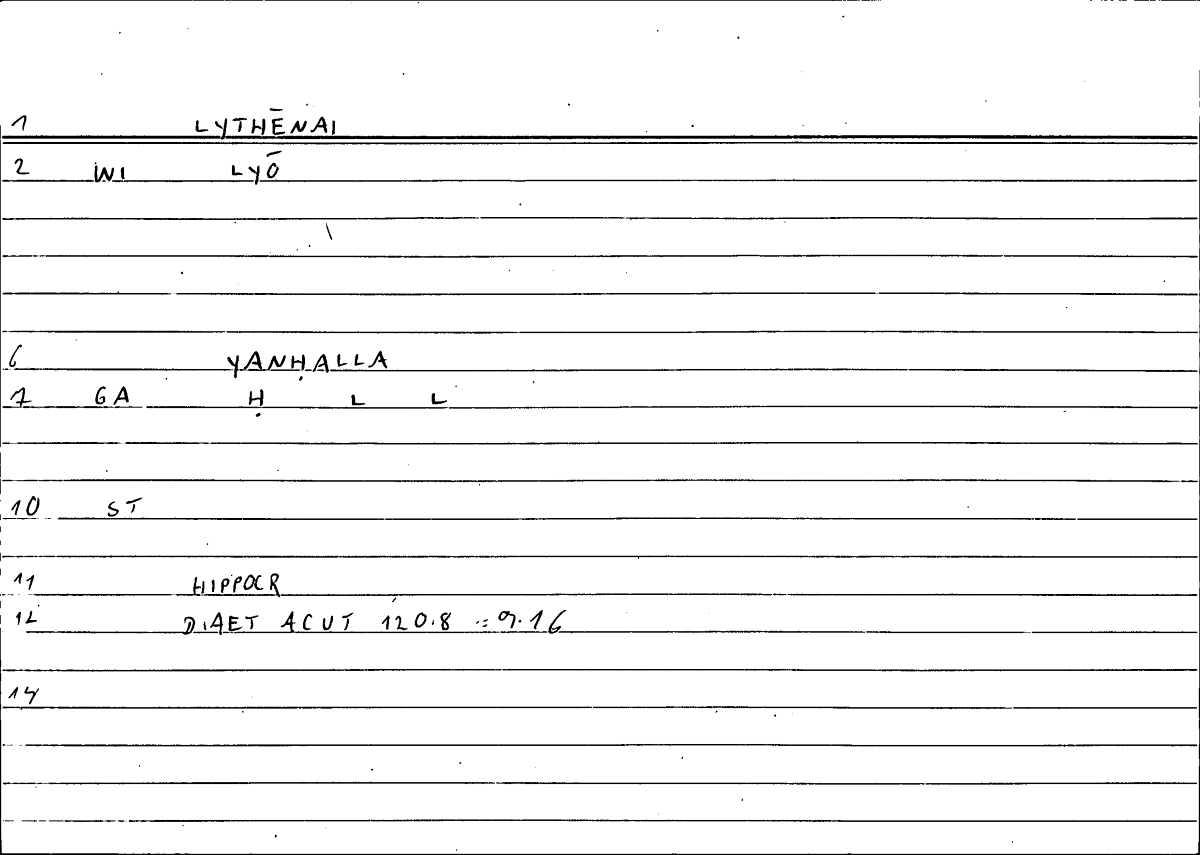 1 LYTHĒNAI
2 INI LYŌ
6 YANḤALLA
7 GA Ḥ L L
10 ST
11 HIPPOCR
12 DIAET ACUT 120.8 = 9.16
14